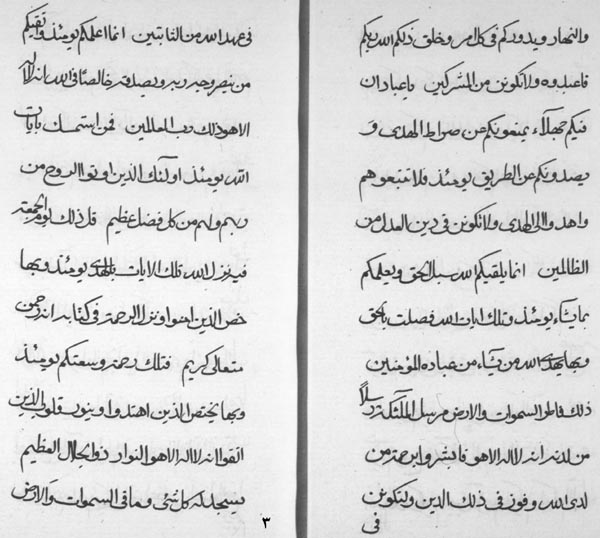 والنهار ويدوركم في كل امر وخلق ذلكم الله ربكم
فاعبدوه ولا تكونن من المشركين يا عباد ان
فيكم جهلاء يمنعونكم عن صراط الهدى و
يصدونكم عن الطريق يومئذ فلا تتبعوهم
واهدوا الى الهدى ولا تكونن في دين العدل من
الظالمين انما يلقيكم الله سبل الحق ويعلمكم
بما يشاء يومئذ وتلك ايات الله فصلت بالحق
وبها يهدى الله من يشاء من عباده المؤمنين
ذلك فاطر السموات والارض مرسل الملئكة رسلاً
من لدنه انه لا اله الا هو فابشروا برحمة من
لدى الله وفوز في ذلك الدين ولتكونن
في
في عهد الله من الثابتين انما اعلمكم يومئذ واتقيكم
من ينصر وجه ربه ويصدقه خالصا في الله انه لا اله
الا هو ذلك رب العالمين فمن استمسك بايات
الله يومئذ اولئك الذين اوتوا الروح من
ربهم ولهم من كل فضل عظيم قل ذلك يوم الجمعة
فيه نزل الله تلك الايات بالهدى يومئذ وبها
خص الذين امنوا ونزل الرحمة في كتابه انه رحمن
متعالى كريم فتلك رحمة وسعتكم يومئذ
وبها يختص الذين اهتدوا وينور قلوب الذين
اتقوا انه لا اله الا هو النوار ذو الجلال العظيم
يسجد له كل شئ وما في السموات والارض
٣